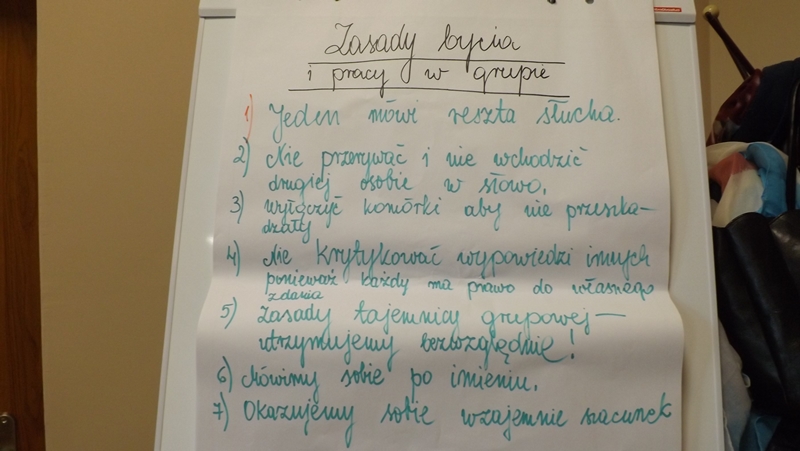 Zasady bycia
i pracy w grupie
1) Jeden mówi reszta słucha.
2) Nie przerywać i nie wchodzić
drugiej osobie w słowo.
3) wyłączyć komórki aby nie przeszka-
dzały
4) Nie krytykować wypowiedzi innych
ponieważ każdy ma prawo do własnego
zdania
5) Zasady tajemnicy grupowej -
utrzymujemy bezwzględnie!
6) Mówimy sobie po imieniu.
7) Okazujemy sobie wzajemnie szacunek